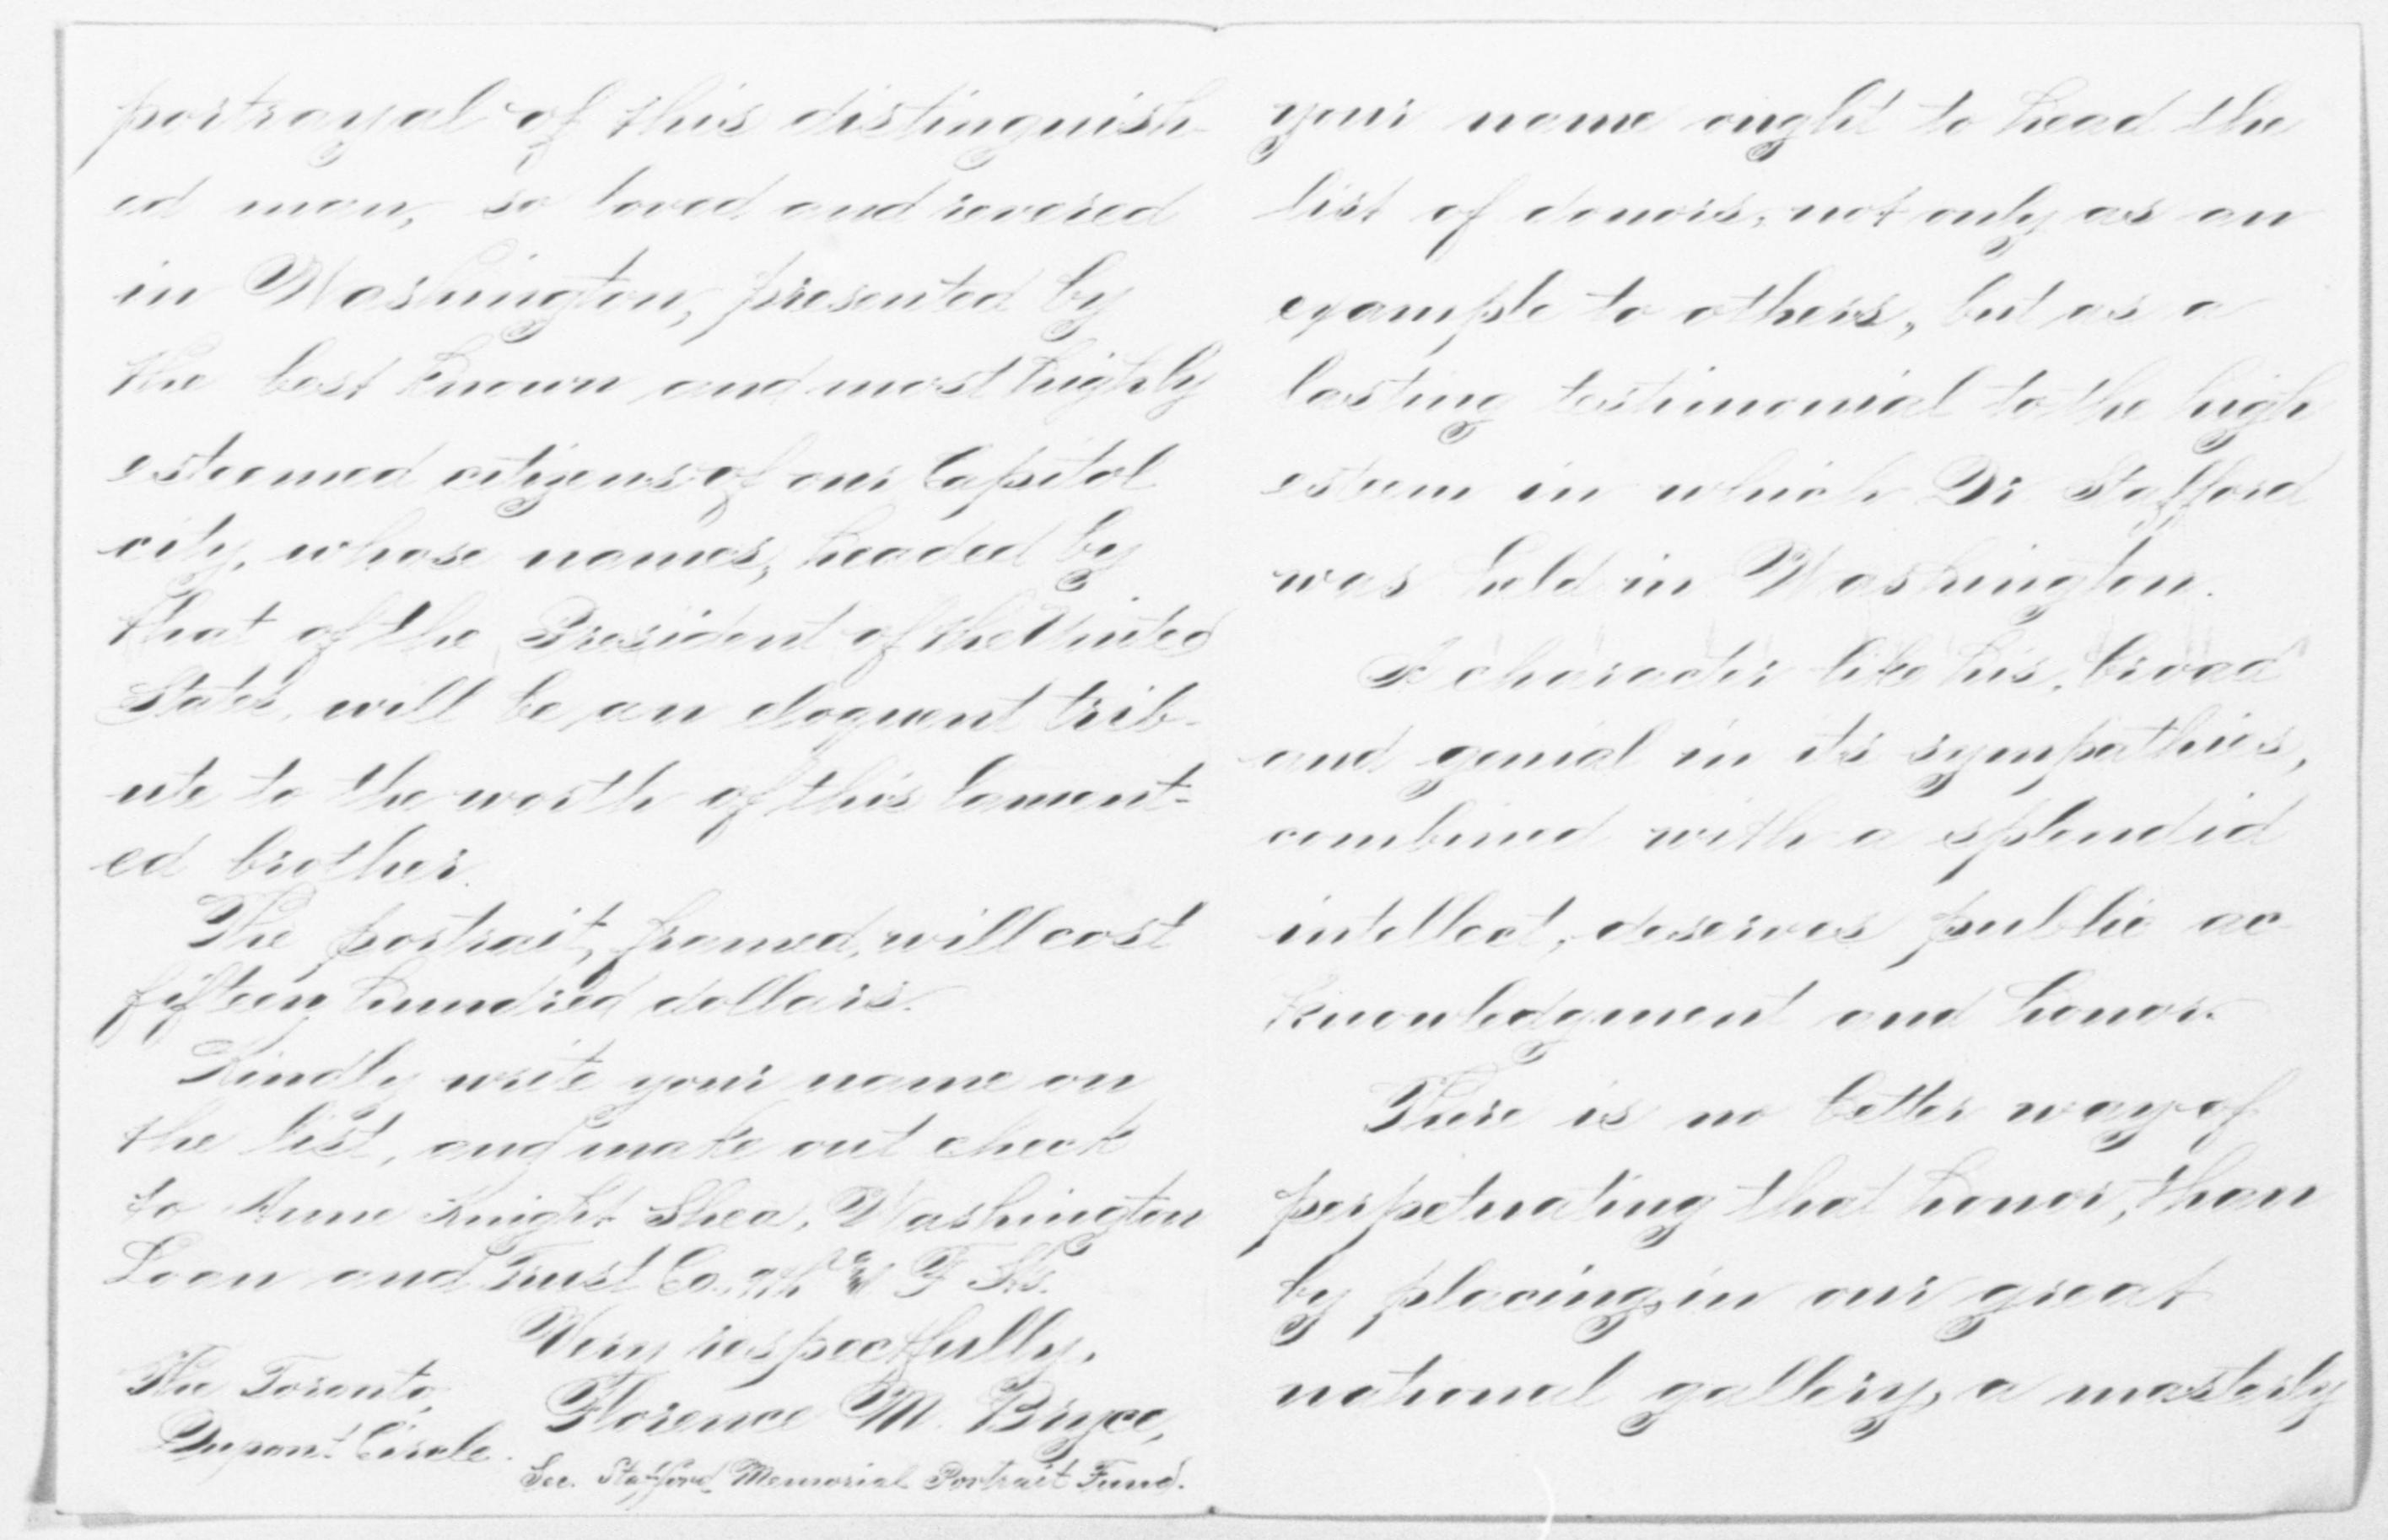 portrayal of this distinguish-
ed man, so loved and revered
in Washington, presented by
the best known and most highly
esteemed citizens of our Capitol
city, whose names, headed by
that of the President of the United
States, will be an eloquent trib-
ute to the worth of this lament-
ed brother.
The portrait, framed, will cost
fifteen hundred dollars.
Kindly write your name on
the list, and make out check
to Anne Knight Shea, Washington
Loan and Trust Co., 9th & F Sts.
Very respectfully,
Florence M. Bryce,
Sec. Stafford Memorial Portrait Fund.
The Toronto,
Dupont Circle.
your name ought to head the
list of donors, not only as an
example to others, but as a
lasting testimonial to the high
esteem in which Dr Stafford
was held in Washington.
A character like his, broad
and genial in its sympathies,
combined with a splendid
intellect, deserves public ac-
knowledgment and honor.
There is no better way of
perpetuating that honor, than
by placing, in our great
national gallery, a masterly